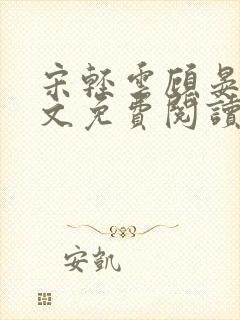 宋輕雲顧晏
文免費閱讀
安凱